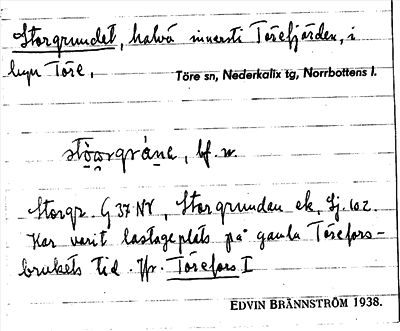 Storgrundet, halvö innerst i Törefjärden, i
byn Töre,
Töre sn, Nederkalix tg, Norrbottens l.
bf. n.
Storgr. G 37 NV, Storgrundan ek. Sj. 102.
Har varit lastageplats på gamla Törefors-
brukets tid. Jfr. Törefors I
EDVIN BRÄNNSTRÖM 1938.